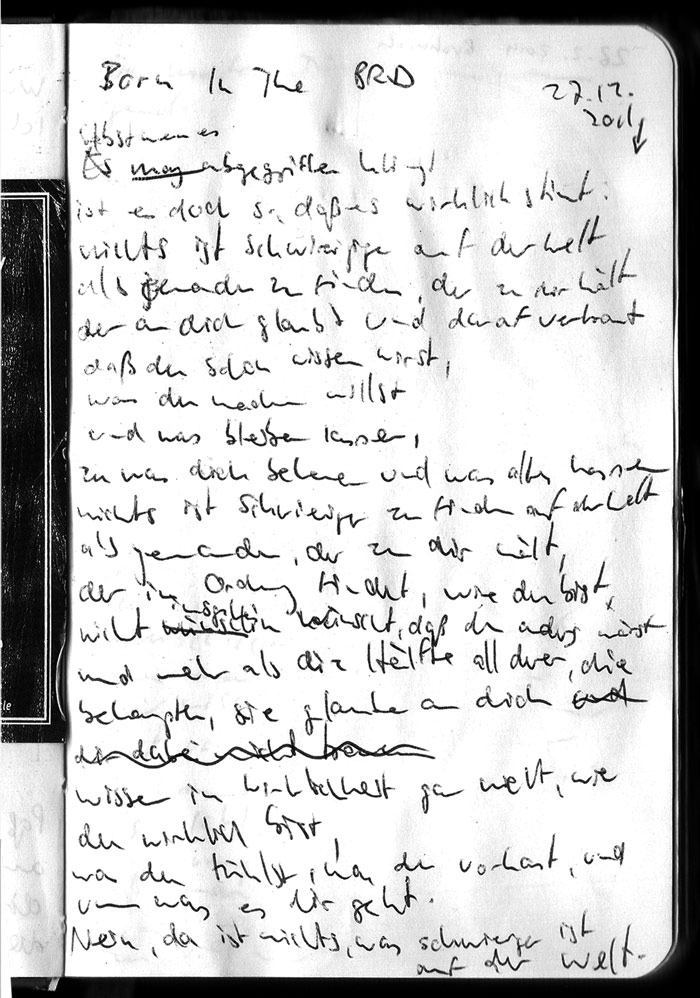 Born In The BRD
27.12.
2011
Selbst wenn es
Es mag abgegriffen klingt
ist es doch so, daß es wirklich stimmt:
nichts ist schwieriger auf der Welt
als jemanden zu finden, der zu dir hält
der an dich glaubt und darauf vertraut
daß du schon wissen wirst,
was du machen willst
und was bleiben lassen,
zu was dich bekennen und was alles hassen
nichts ist schwieriger zu finden auf der Welt
als jemanden, der zu dir hält,
der in Ordnung findet, wie du bist,
nicht insgeheim wünscht, daß du anders wärst
und mehr als die Hälfte all derer, die
behaupten, sie glauben an dich und
dir dabei nicht trauen
wissen in Wirklichkeit gar nicht, wie
du wirklich bist,
was du fühlst, was du vorhast, und
um was es dir geht.
Nein, da ist nichts, was schwieriger ist
auf der Welt.